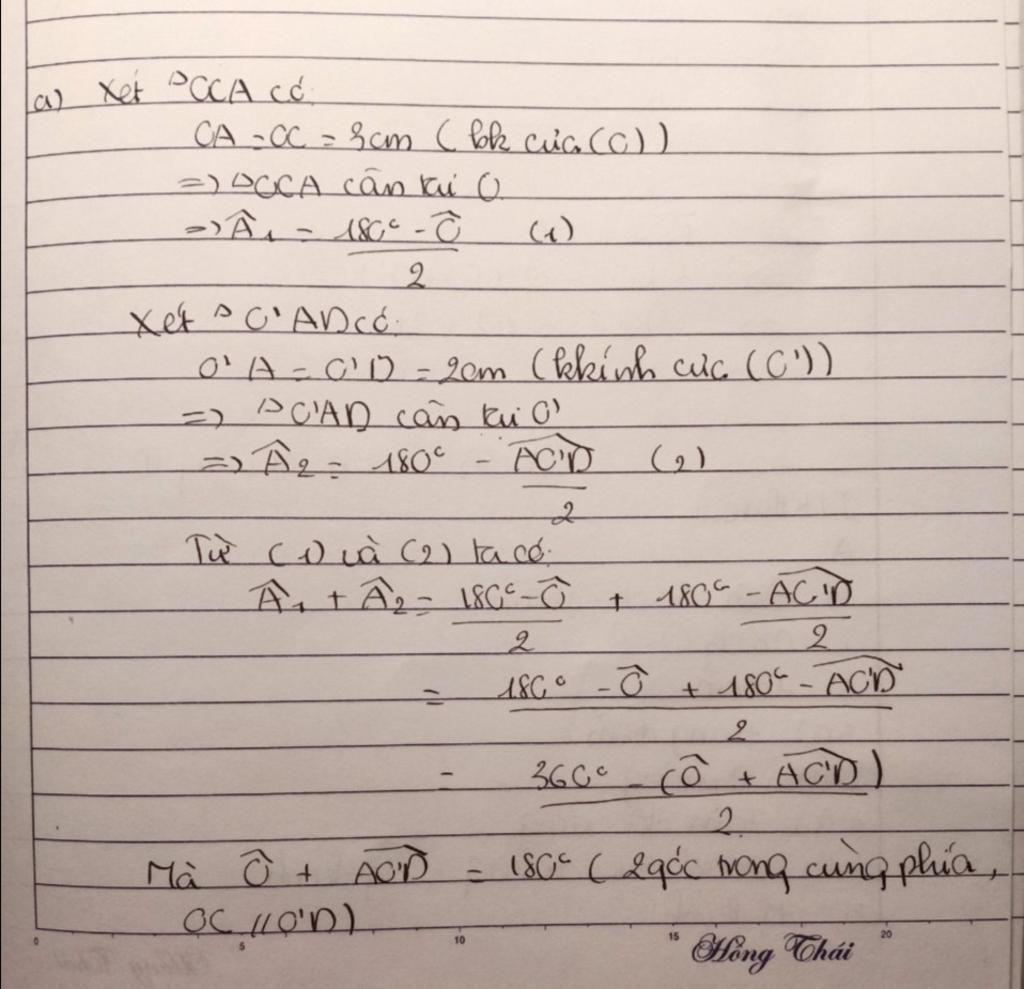 a) Xét △OCA có:
OA = OC = 3cm (bk của (O))
=> △OCA cân tại O
=> Â₁ = (180° - Ô)/2 (1)
Xét △O'AD có:
O'A = O'D = 2cm (bkính của (O'))
=> △O'AD cân tại O'
=> Â₂ = (180° - \widehat{AO'D})/2 (2)
Từ (1) và (2) ta có:
Â₁ + Â₂ = (180° - Ô)/2 + (180° - \widehat{AO'D})/2
= (180° - Ô + 180° - \widehat{AO'D})/2
= (360° - (Ô + \widehat{AO'D}))/2
Mà Ô + \widehat{AO'D} = 180° (2 góc trong cùng phía,
OC // O'D)
0 5 10 15 20
Hồng Thái